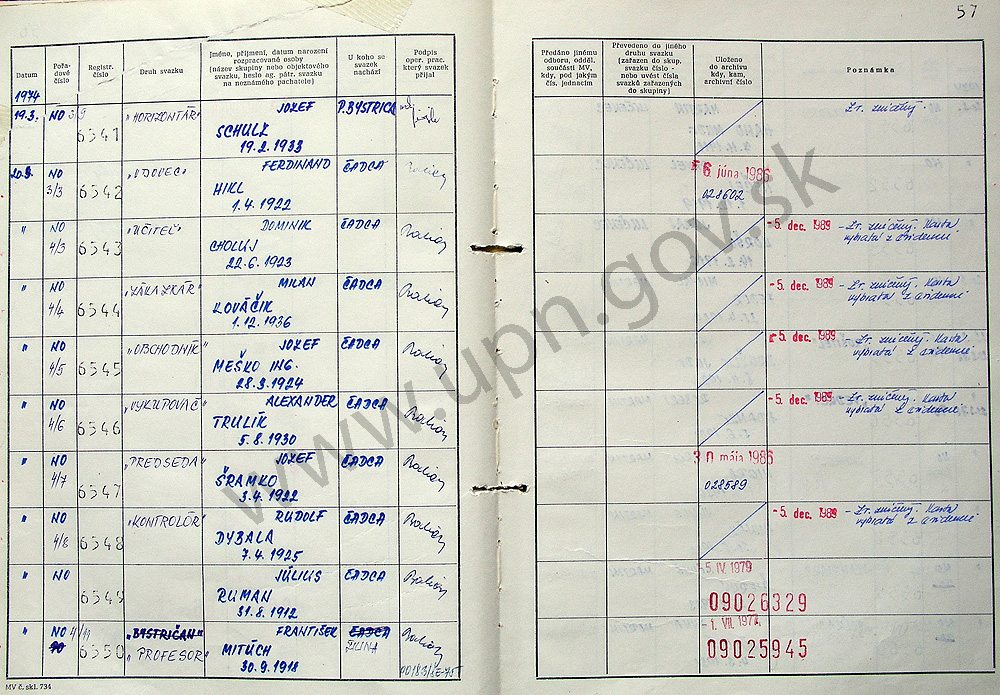 57
Datum
Pořa-
dové
číslo
Registr.
číslo
Druh svazku
Jméno, příjmení, datum narození
rozpracované osoby
(název skupiny nebo objektového
svazku, heslo ag. pátr. svazku
na neznámého pachatele)
U koho se
svazek
nachází
Podpis
oper. prac.
který svazek
přijal
Předáno jinému
odboru, odděl.
součásti MV,
kdy, pod jakým
čís. jednacím
Převedeno do jiného
druhu svazku
(zařazen do skup.
svazku číslo -
nebo uvést čísla
svazků zařazených
do skupiny)
Uloženo
do archivu
kdy, kam,
archivní číslo
Poznámka
1974
19.3. NO 3/9 6541 "HORIZONTÁR" JOZEF P. BYSTRICA
SCHULZ
19.2.1933
Zv. zničený.
20.3. NO 3/3 6542 "VDOVEC" FERDINAND ČADCA
HIKL
1.4.1922
6 júna 1986
028602
" NO 4/3 6543 "UČITEĽ" DOMINIK ČADCA
CHOLUJ
22.6.1923
-5. dec. 1989 - Zv. zničený. Karta
vybratá z evidencie
" NO 4/4 6544 "ZÁKAZKÁR" MILAN ČADCA
KOVÁČIK
1.12.1936
-5. dec. 1989 - Zv. zničený. Karta
vybratá z evidencie
" NO 4/5 6545 "OBCHODNÍK" JOZEF ČADCA
MEŠKO ING.
28.3.1924
5. dec. 1989 - Zv. zničený. Karta
vybratá z evidencie
" NO 4/6 6546 "VYKUPOVAČ" ALEXANDER ČADCA
TRULÍK
5.8.1930
-5. dec. 1989 - Zv. zničený. Karta
vybratá z evidencie
" NO 4/7 6547 "PREDSEDA" JOZEF ČADCA
ŠRAMKO
3.4.1922
30 mája 1986
028589
" NO 4/8 6548 "KONTROLÓR" RUDOLF ČADCA
DYBALA
7.4.1925
-5. dec. 1989 - Zv. zničený. Karta
vybratá z evidencie
" NO 6549 JÚLIUS ČADCA
RUMAN
31.8.1912
-5. IV. 1979
09026329
" NO 4/11 6550 "BYSTRIČAN" FRANTIŠEK ČADCA
"PROFESOR" MITÚCH ŽILINA
30.9.1918
-1. VII. 1977
09025945
MV č. skl. 734
www.upn.gov.sk